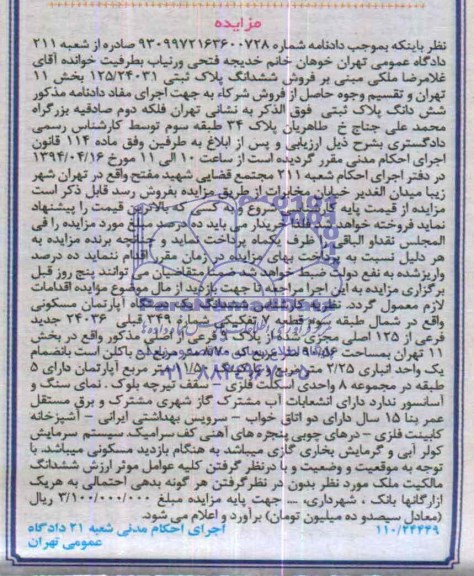 مزایده
نظر باینکه بموجب دادنامه شماره ۹۳۰۹۹۷۲۱۶۳۶۰۰۷۲۸ صادره از شعبه ۲۱۱
دادگاه عمومی تهران خوهان خانم خدیجه فتحی ورنیاب بطرفیت خوانده آقای
غلامرضا ملکی مبنی بر فروش ششدانگ پلاک ثبتی ۱۲۵/۲۴۰۳۱ بخش ۱۱
تهران و تقسیم وجوه حاصل از فروش شرکاء به جهت اجرای مفاد دادنامه مذکور
شش دانگ پلاک ثبتی فوق الذکر به نشانی تهران فلکه دوم صادقیه بزرگراه
محمد علی جناح خ طاهریان پلاک ۳۴ طبقه سوم توسط کارشناس رسمی
دادگستری بشرح ذیل ارزیابی و پس از ابلاغ به طرفین وفق ماده ۱۱۴ قانون
اجرای احکام مدنی مقرر گردیده است از ساعت ۱۰ الی ۱۱ مورخ ۱۳۹۴/۰۴/۱۶
در دفتر اجرای احکام شعبه ۲۱۱ مجتمع قضایی شهید مفتح واقع در تهران شهر
زیبا میدان الغدیر خیابان مخابرات از طریق مزایده بفروش رسد قابل ذکر است
مزایده از قیمت پایه شروع و به کسی که بالاترین قیمت را پیشنهاد
نماید فروخته خواهد شد فلذا خریدار می باید ده درصد مبلغ مورد مزایده را فی
المجلس نقداو الباقی را ظرف یکماه پرداخت نماید و چنانچه برنده مزایده به
هر دلیل نسبت به پرداخت بهای مزایده در زمان مقرر اقدام ننماید ده درصد
واریزشده به نفع دولت ضبط خواهد شد ضمنا متقاضیان می توانند پنج روز قبل
برگزاری مزایده به این اجرا مراجعه تا جهت بازدید از مال موضوع مزایده اقدامات
لازم معمول گردد. نظریه کارشناس ششدانگ یک دستگاه آپارتمان مسکونی
واقع در شمال طبقه سوم قطعه ۷ تفکیکی قبلی ۲۴۰۳۶ جدید
فرعی از ۱۲۵ اصلی مجزی شده از پلاک فرعی از اصلی مذکور واقع در بخش
۱۱ تهران بمساحت متر مربع که متر مربع آن بالکن است بانضمام
یک واحد انباری ۲/۲۵ مترمربع و پارکینگ متر مربع آپارتمان دارای ۵
طبقه در مجموعه ۸ واحدی اسکلت فلزی – سقف تیرچه بلوک . نمای سنگ و
آسانسور ندارد دارای انشعابات آب مشترک گاز شهری مشترک و برق مستقل
عمر بنا ۱۵ سال دارای دو اتاق خواب – سرویس بهداشتی ایرانی – آشپزخانه
کابینت فلزی – درهای چوبی پنجره های آهنی کف سرامیک. سیستم سرمایش
کولر آبی و گرمایش بخاری گازی میباشد به هنگام بازدید مسکونی میباشد. با
توجه به موقعیت و وضعیت و با درنظر گرفتن کلیه عوامل موثر ارزش ششدانگ
مالکیت ملک مورد نظر بدون در نظرگرفتن هر گونه بدهی احتمالی به هریک
ازارگانها بانک ، شهرداری، ... جهت پایه مزایده مبلغ ۳/۱۰۰/۰۰۰/۰۰۰ ریال
(معادل سیصدو ده میلیون تومان) برآورد و اعلام می شود.
۱۱۰/۲۴۴۴۹ اجرای احکام مدنی شعبه ۲۱ دادگاه
عمومی تهران